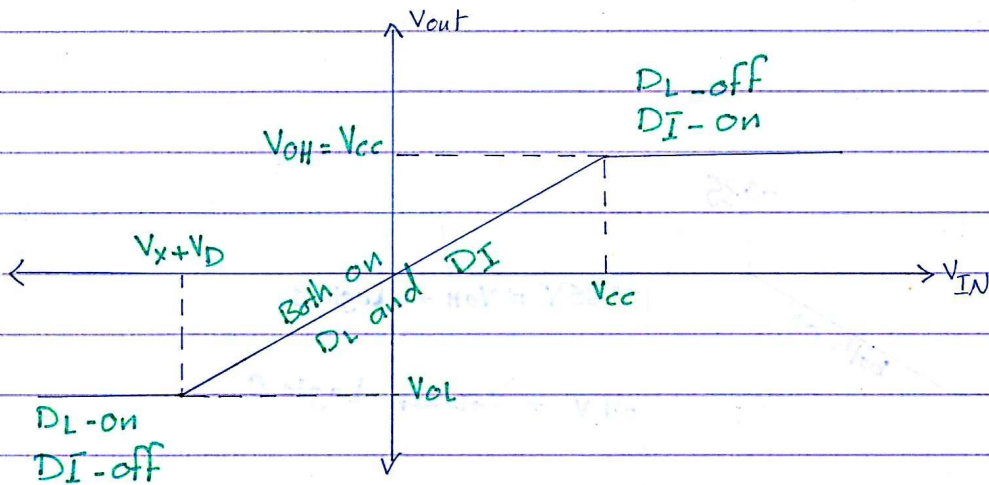 Vout
DL-off
DI-on
VOH = VCC
VX+VD
Both on
DL and
DI
VIN
VCC
VOL
DL-on
DI-off